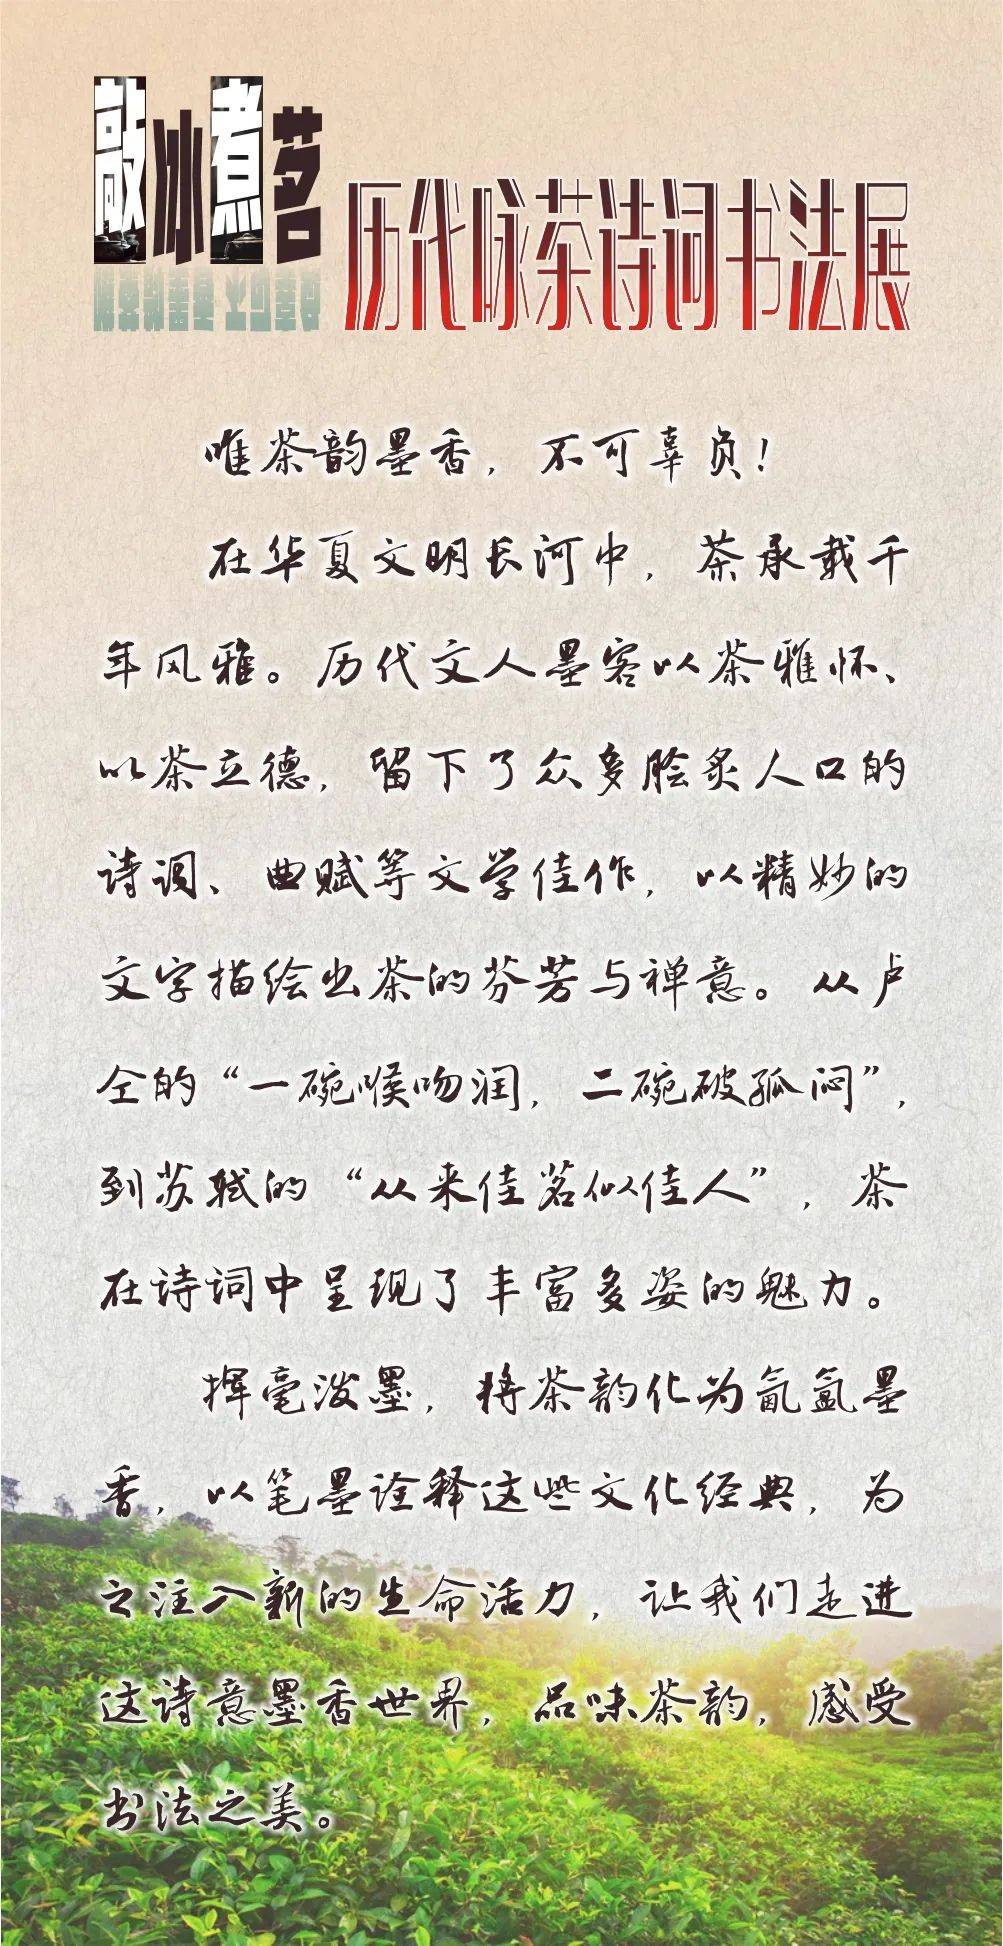 敲冰煮茗
历代咏茶诗词书法展
唯茶韵墨香，不可辜负！
在华夏文明长河中，茶承载千
年风雅。历代文人墨客以茶雅怀、
以茶立德，留下了众多脍炙人口的
诗词、曲赋等文学佳作，以精妙的
文字描绘出茶的芬芳与禅意。从卢
仝的“一碗喉吻润，二碗破孤闷”，
到苏轼的“从来佳茗似佳人”，茶
在诗词中呈现了丰富多姿的魅力。
挥毫泼墨，将茶韵化为氤氲墨
香，以笔墨诠释这些文化经典，为
之注入新的生命活力，让我们走进
这诗意墨香世界，品味茶韵，感受
书法之美。